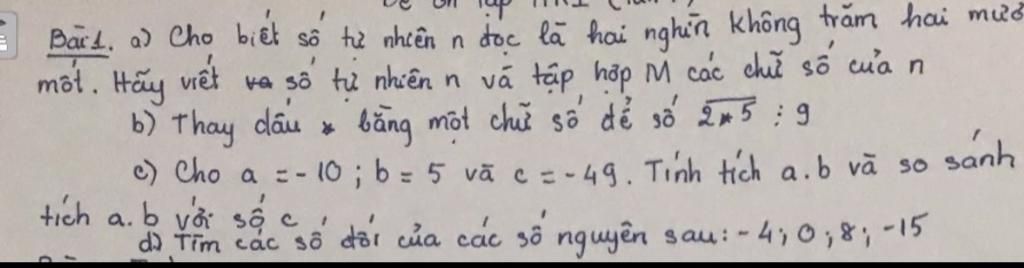 Đề ôn tập
Bài 1. a) Cho biết số tự nhiên n đọc là hai nghìn không trăm hai mươi
mốt. Hãy viết số tự nhiên n và tập hợp M các chữ số của n
b) Thay dấu * bằng một chữ số để số 2*5 ⋮ 9
c) Cho a = -10 ; b = 5 và c = -49. Tính tích a.b và so sánh
tích a.b với số c
d) Tìm các số đối của các số nguyên sau: -4; 0; 8; -15